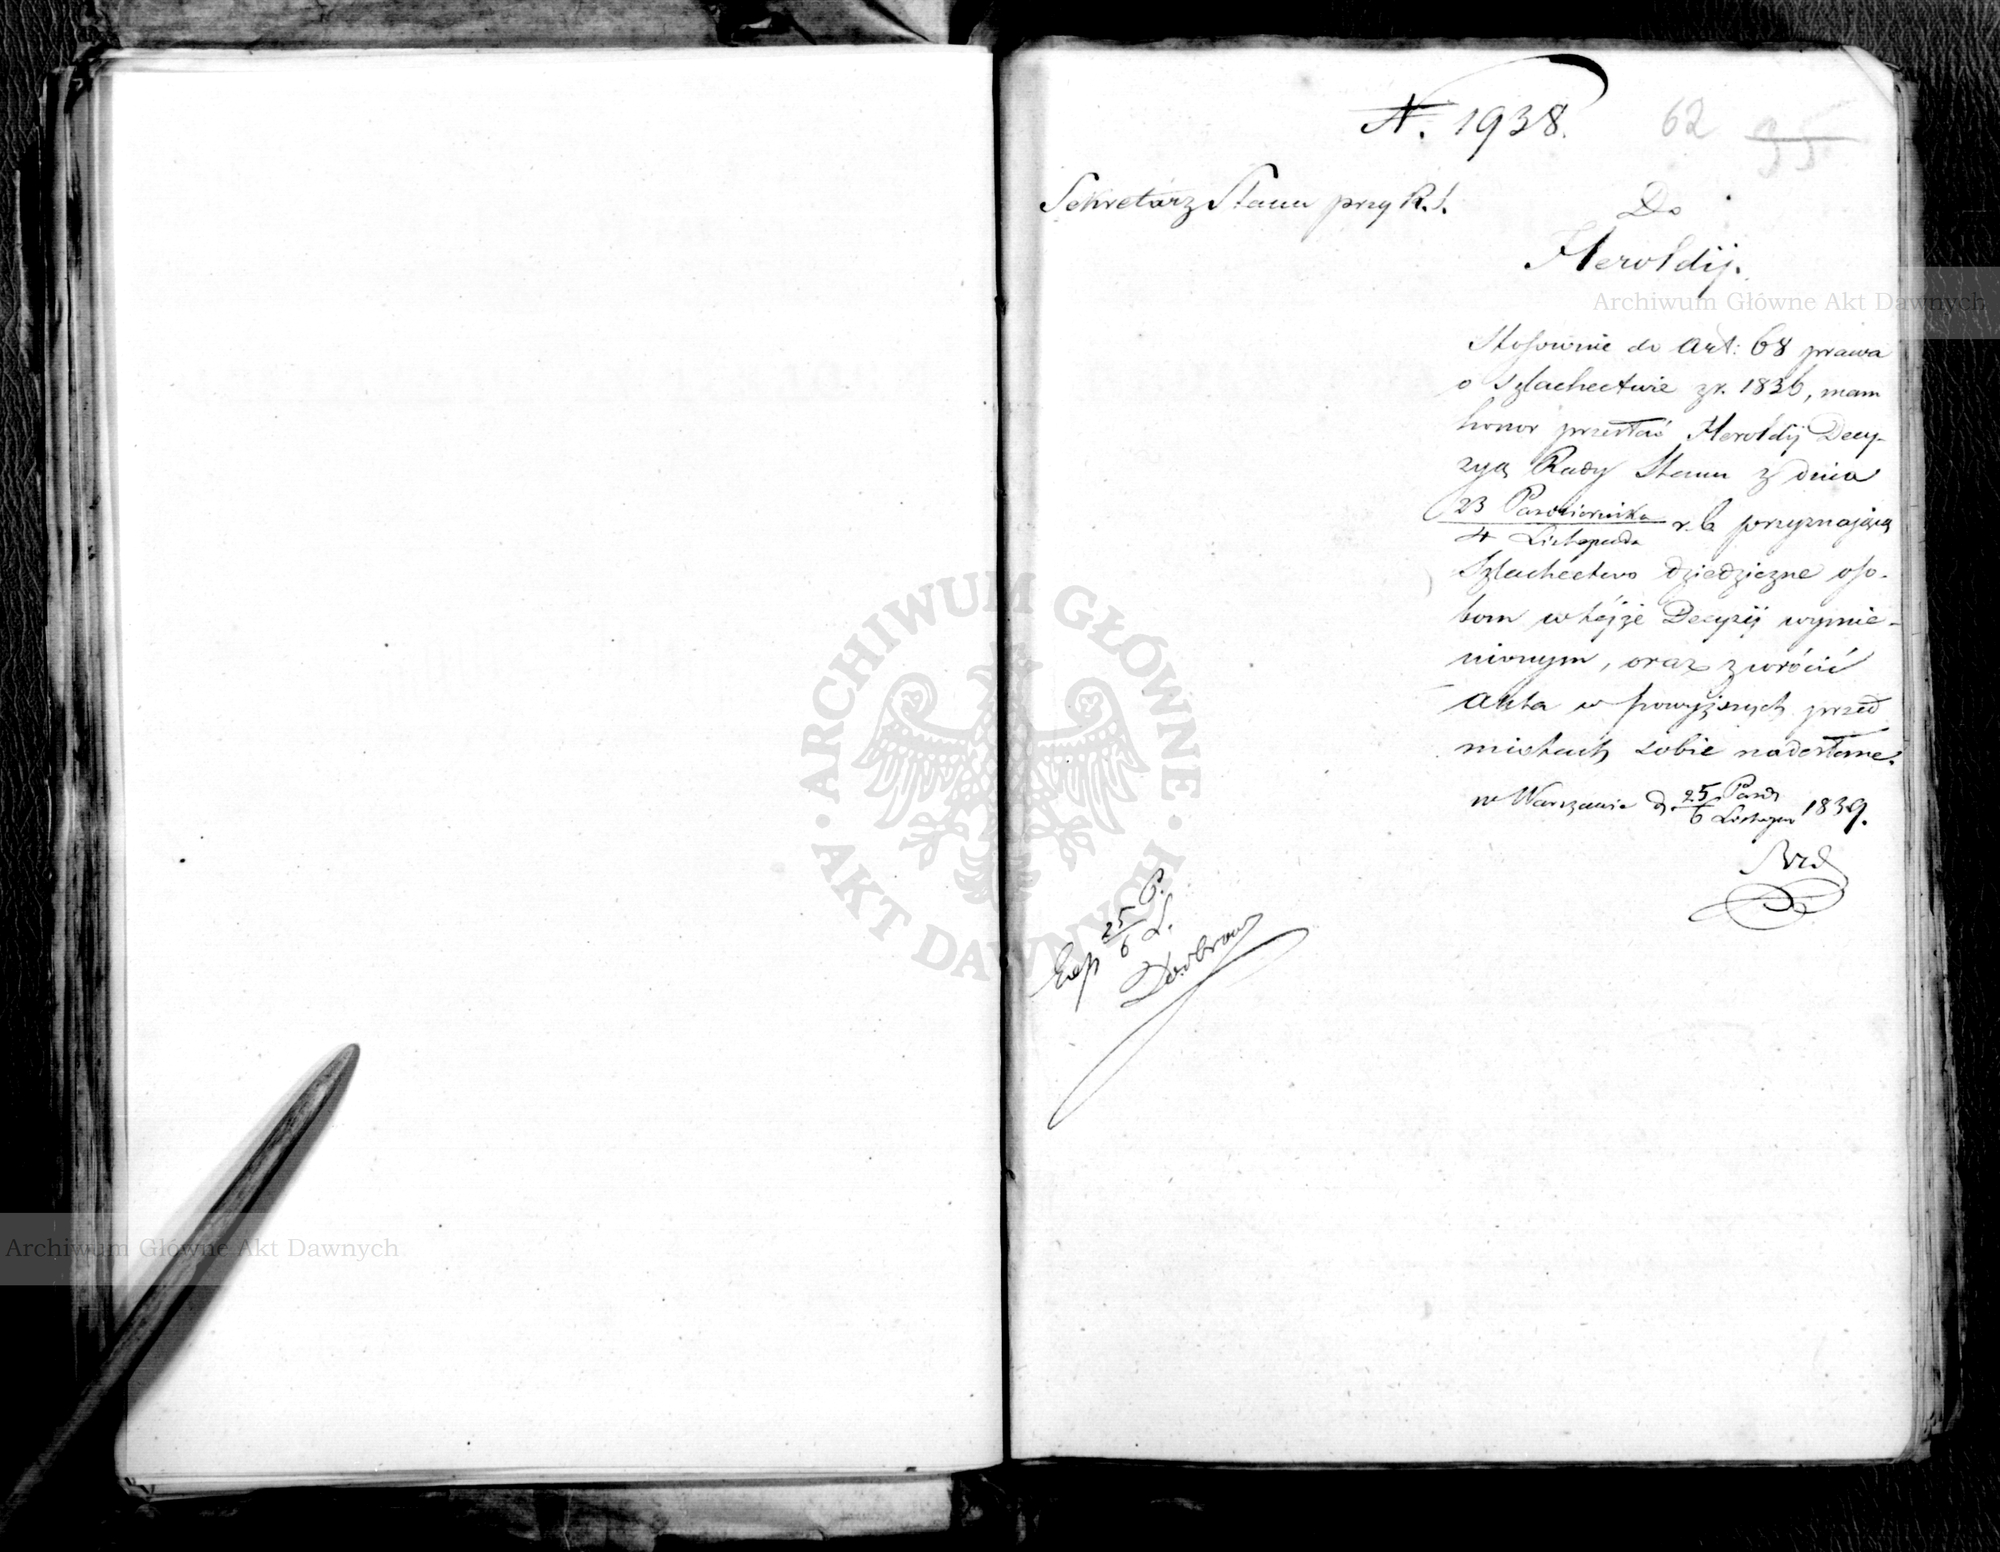 N. 1938.
62 35
Sekretarz Stanu przy R. S.
Do
Heroldij.
Stosownie do Art: 68 prawa
o Szlachectwie z r. 1836, mam
honor przesłać Heroldij Decy-
zyą Rady Stanu z dnia
23 Października
4 Listopada r. b. przyznającą
Szlachectwo dziedziczne oso-
bom w tójże Decyzij wymie-
nionym, oraz zwrócić
Akta w powyższych przed
miotach sobie nadesłane.
w Warszawie d. 25 Paźd
6 Listopa 1839.
25 P.
6 L.
Exp
Archiwum Główne Akt Dawnych
Archiwum Główne Akt Dawnych
ARCHIWUM GŁÓWNE
AKT DAWNYCH